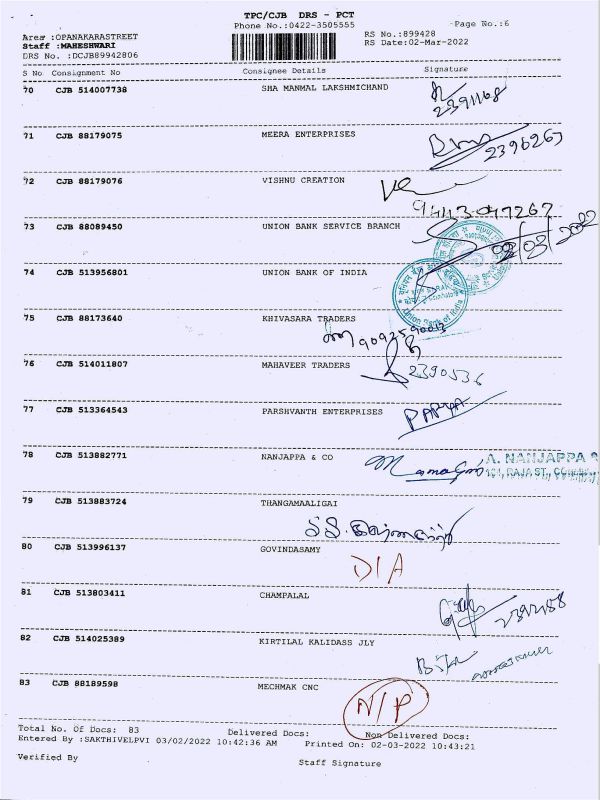 TPC/CJB DRS - PCT
Phone No.:0422-3505555
Page No.:6
Area :OPANAKARASTREET
Staff :MAHESHWARI
DRS No. :DCJB89942806
RS No.:899428
RS Date:02-Mar-2022
S No Consignment No Consignee Details Signature
70 CJB 514007738 SHA MANMAL LAKSHMICHAND
2391168
71 CJB 88179075 MEERA ENTERPRISES
2396267
72 CJB 88179076 VISHNU CREATION
9443047267
73 CJB 88089450 UNION BANK SERVICE BRANCH
02/03/2022
74 CJB 513956801 UNION BANK OF INDIA
Union Bank of India
75 CJB 88173640 KHIVASARA TRADERS
9092590013
76 CJB 514011807 MAHAVEER TRADERS
2390536
77 CJB 513364543 PARSHVANTH ENTERPRISES
78 CJB 513882771 NANJAPPA & CO
A. NANJAPPA
101, RAJA ST,
79 CJB 513883724 THANGAMAALIGAI
80 CJB 513996137 GOVINDASAMY
D/A
81 CJB 513803411 CHAMPALAL
82 CJB 514025389 KIRTILAL KALIDASS JLY
83 CJB 88189598 MECHMAK CNC
N/P
Total No. Of Docs: 83 Delivered Docs: Non Delivered Docs:
Entered By :SAKTHIVELPVI 03/02/2022 10:42:36 AM Printed On: 02-03-2022 10:43:21
Verified By Staff Signature